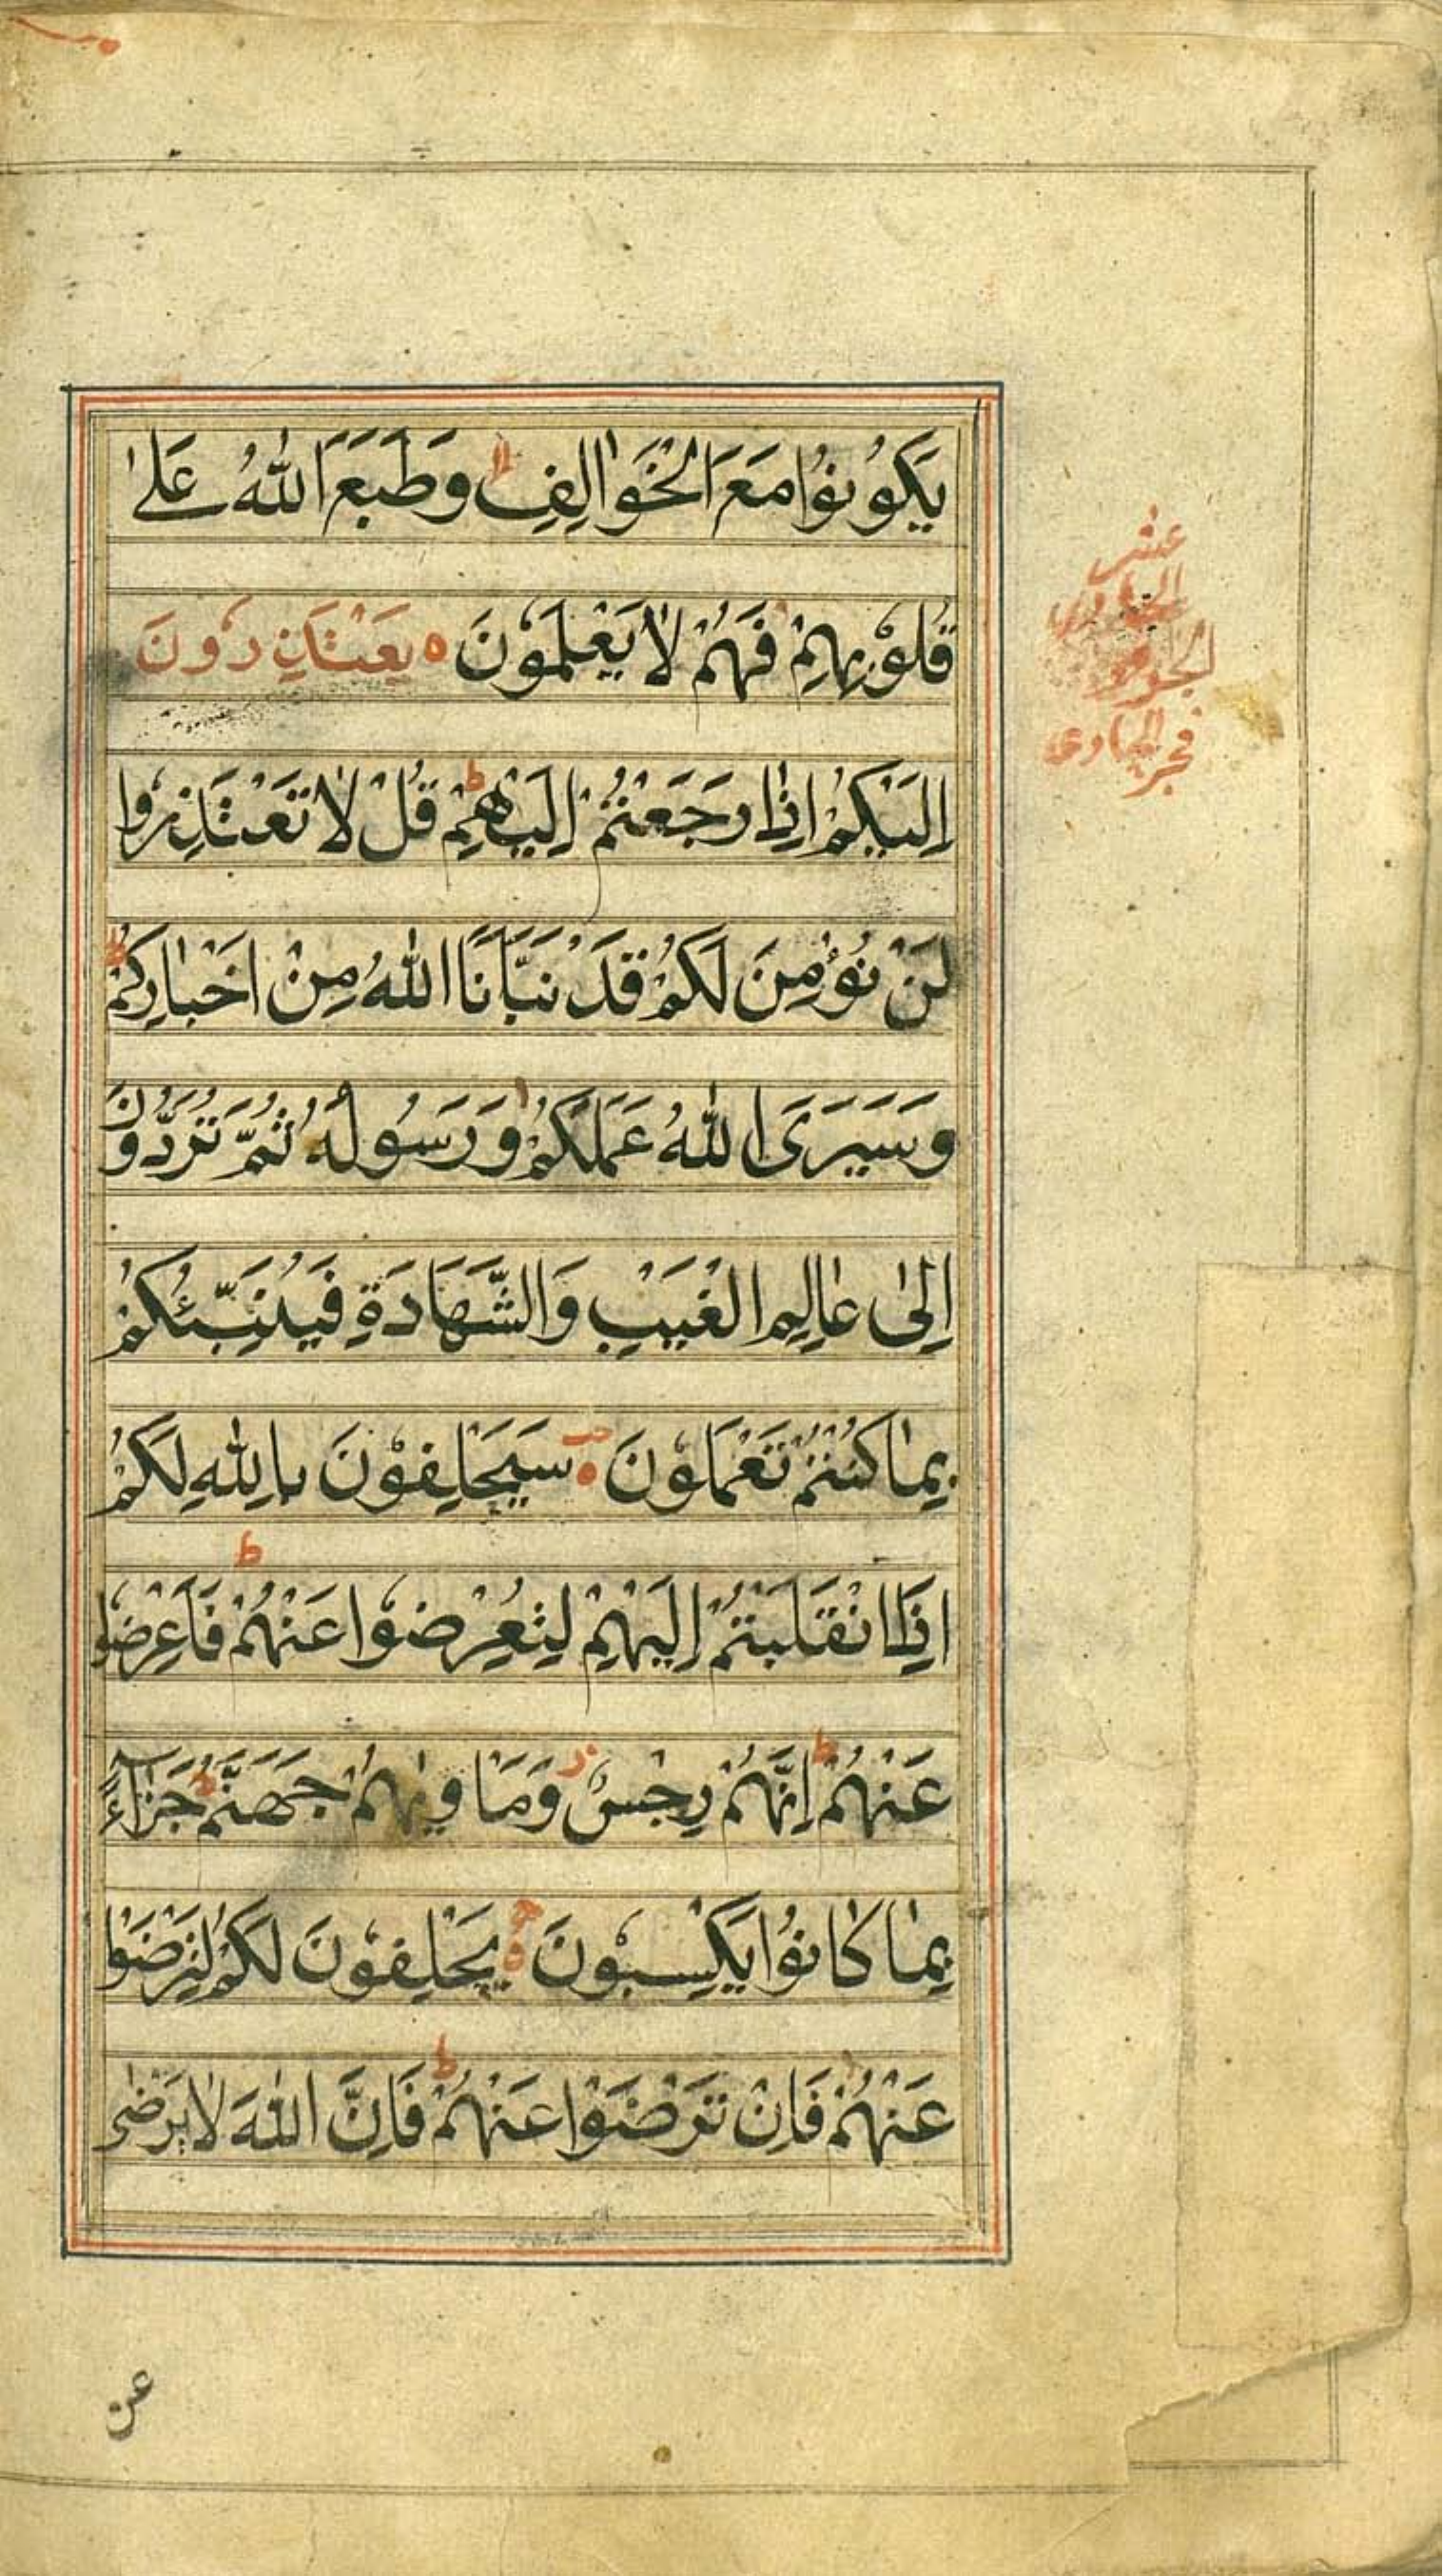 يَكُونُوا مَعَ الْخَوَالِفِ وَطَبَعَ اللّٰهُ عَلٰى
قُلُوْبِهِمْ فَهُمْ لَا يَعْلَمُوْنَ ه يَعْتَذِرُونَ
اِلَيْكُمْ اِذَا رَجَعْتُمْ اِلَيْهِمْ ط قُلْ لَا تَعْتَذِرُوا
لَنْ نُؤْمِنَ لَكُمْ قَدْ نَبَّاَنَا اللّٰهُ مِنْ اَخْبَارِكُمْ ط
وَسَيَرَى اللّٰهُ عَمَلَكُمْ وَرَسُولُهُ ثُمَّ تُرَدُّوْنَ
اِلٰى عَالِمِ الْغَيْبِ وَالشَّهَادَةِ فَيُنَبِّئُكُمْ
بِمَا كُنْتُمْ تَعْمَلُوْنَ ه سَيَحْلِفُوْنَ بِاللّٰهِ لَكُمْ
اِذَا انْقَلَبْتُمْ اِلَيْهِمْ لِتُعْرِضُوْا عَنْهُمْ ط فَاَعْرِضُوْا
عَنْهُمْ ط اِنَّهُمْ رِجْسٌ ز وَمَاْوٰىهُمْ جَهَنَّمُ جَزَآءً
بِمَا كَانُوْا يَكْسِبُوْنَ ه يَحْلِفُوْنَ لَكُمْ لِتَرْضَوْا
عَنْهُمْ فَاِنْ تَرْضَوْا عَنْهُمْ ط فَاِنَّ اللّٰهَ لَا يَرْضٰى
عن
الجزو